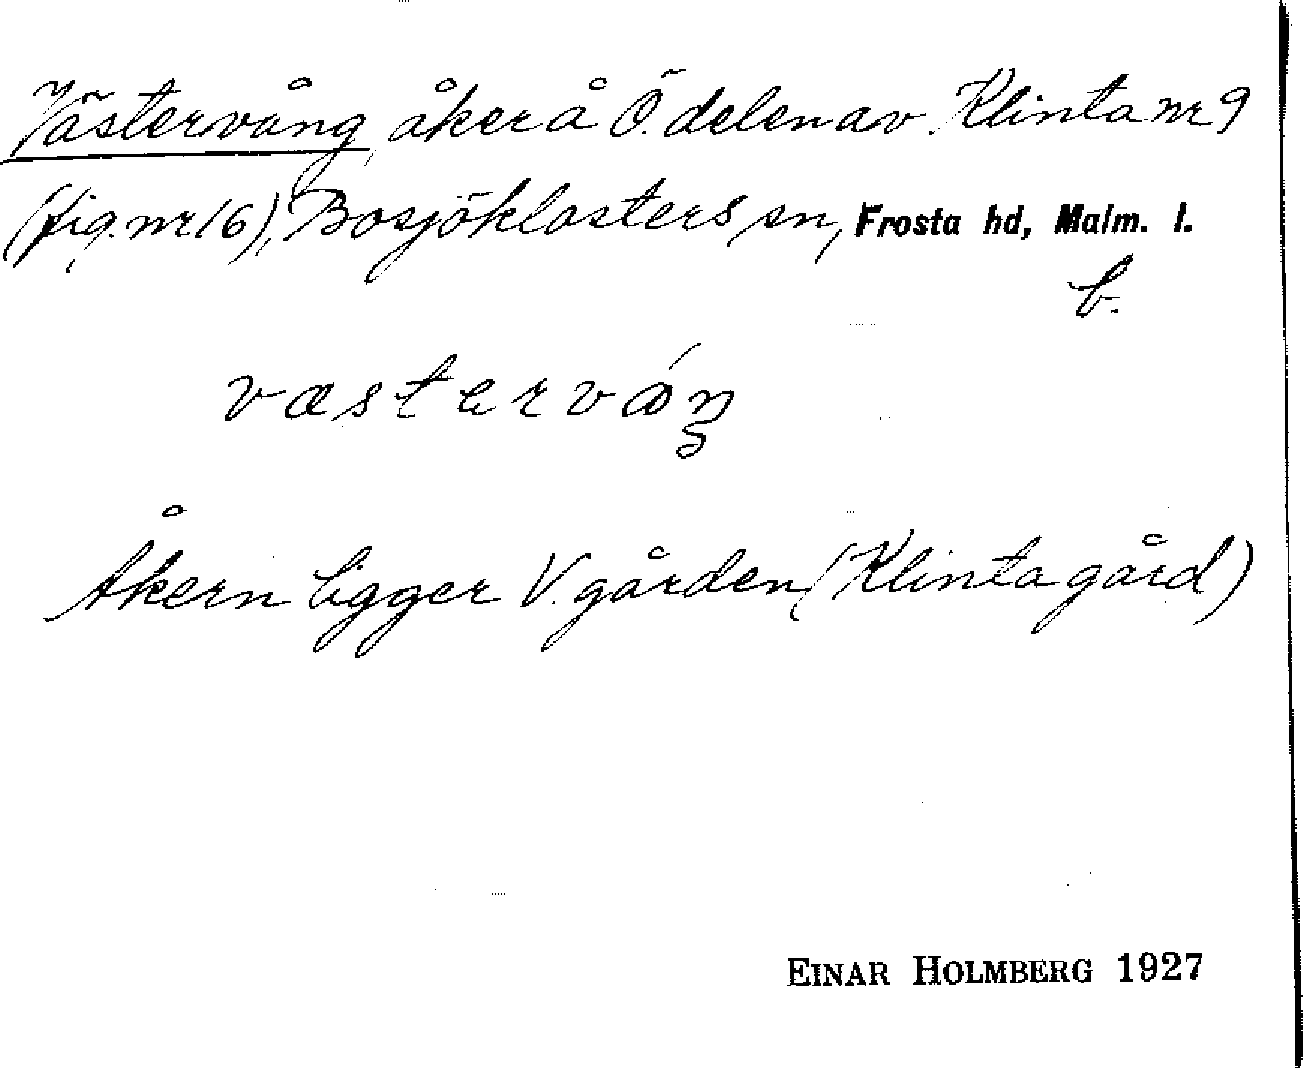 Västervång, åker å Ö. delen av Klinta nr 9
(fig. nr 16), Bosjöklosters sn, Frosta hd, Malm. l.
b.
væstervǻŋ
Åkern ligger V. gården (Klinta gård)
EINAR HOLMBERG 1927